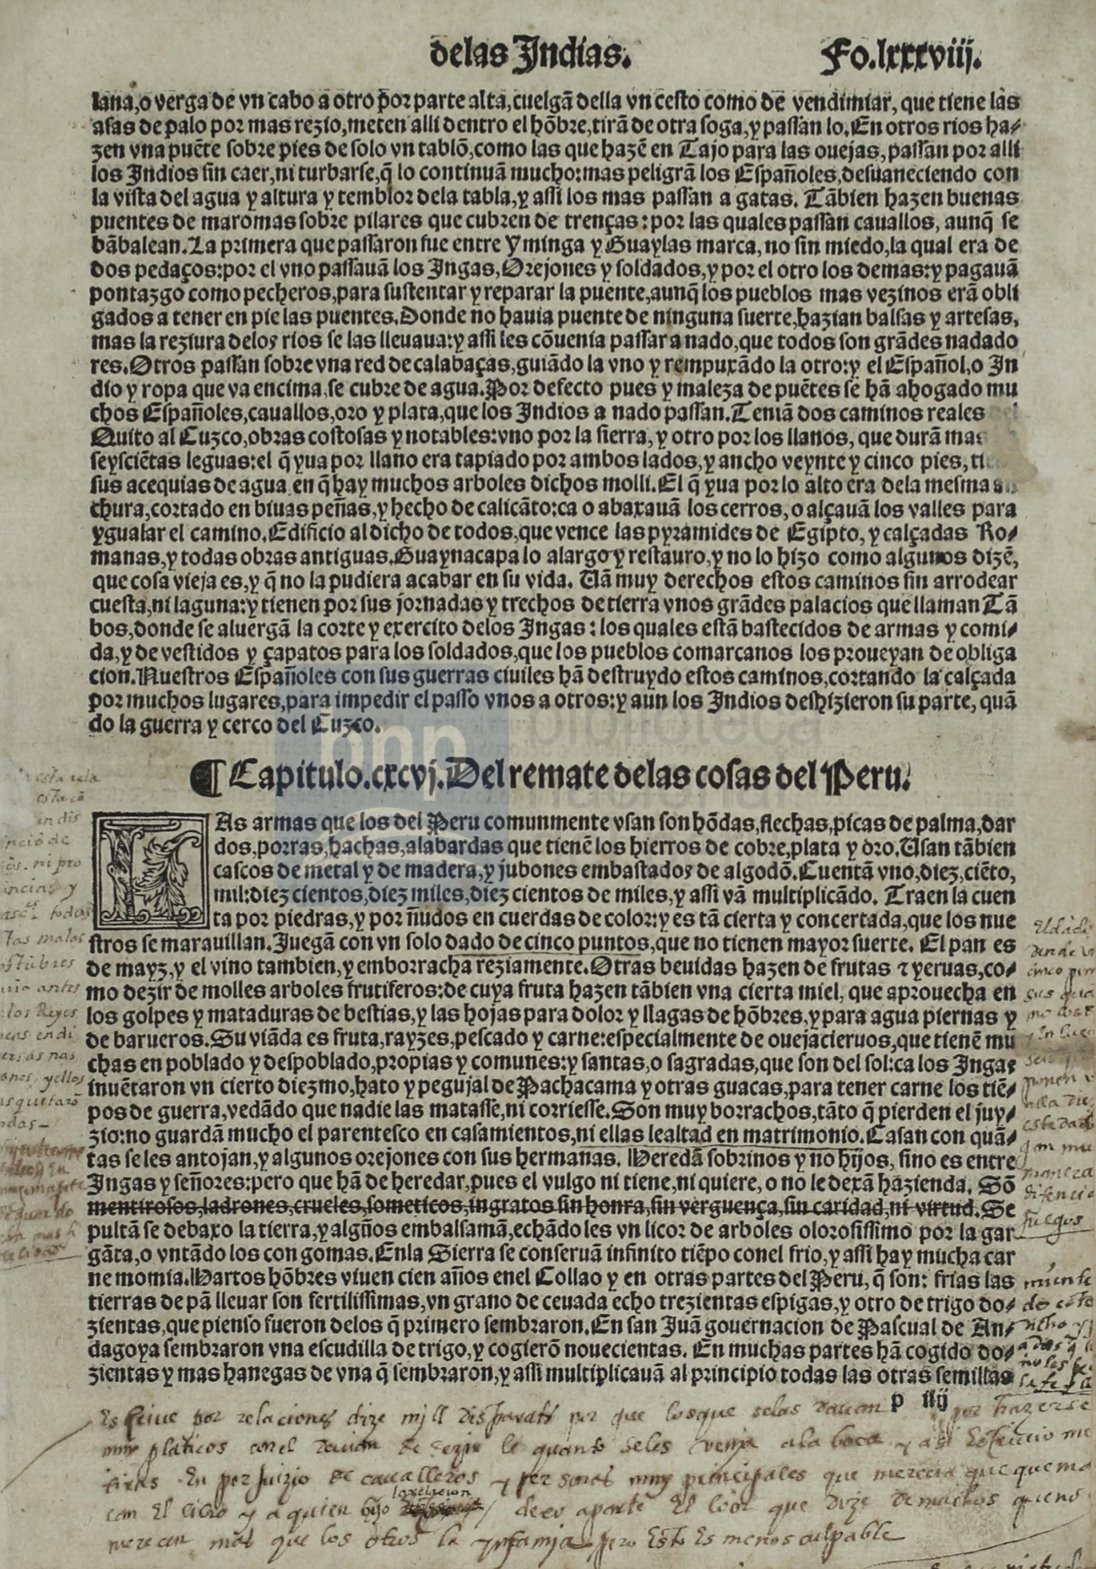 delas Indias. Fo.lxxxviij.
lana,o verga de vn cabo a otro por parte alta,cuelgã della vn cesto como de vendimiar, que tiene las
asas de palo por mas rezio,meten alli dentro el hõbre,tirã de otra soga,y passan lo.En otros rios ha/
zen vna puẽte sobre pies de solo vn tablõ,como las que hazẽ en Tajo para las ouejas,passan por alli
los Indios sin caer,ni turbarse,q̃ lo continuã mucho:mas peligrã los Españoles,desuaneciendo con
la vista del agua y altura y temblor dela tabla,y assi los mas passan a gatas. Tãbien hazen buenas
puentes de maromas sobre pilares que cubren de trenças:por las quales passan cauallos, aunq̃ se
bãbalean.La primera que passaron fue entre Yminga y Guaylas marca, no sin miedo,la qual era de
dos pedaços:por el vno passauã los Ingas,Orejones y soldados,y por el otro los demas:y pagauã
pontazgo como pecheros,para sustentar y reparar la puente,aunq̃ los pueblos mas vezinos erã obli
gados a tener en pie las puentes.Donde no hauia puente de ninguna suerte,hazian balsas y artesas,
mas la reziura delos rios se las lleuaua:y assi les cõuenia passar a nado,que todos son grãdes nadado
res.Otros passan sobre vna red de calabaças,guiãdo la vno y rempuxãdo la otro:y el Español,o In
dio y ropa que va encima,se cubre de agua.Por defecto pues y maleza de puẽtes se hã ahogado mu
chos Españoles,cauallos,oro y plata,que los Indios a nado passan.Teniã dos caminos reales
Quito al Cuzco,obras costosas y notables:vno por la sierra, y otro por los llanos, que durã mas
seysciẽtas leguas:el q̃ yua por llano era tapiado por ambos lados,y ancho veynte y cinco pies,
sus acequias de agua,en q̃ hay muchos arboles dichos molli.El q̃ yua por lo alto era dela mesma an
chura,cortado en biuas peñas,y hecho de calicãto:ca o abaxauã los cerros, o alçauã los valles para
ygualar el camino. Edificio al dicho de todos,que vence las pyramides de Egipto, y calçadas Ro-
manas,y todas obras antiguas.Guaynacapa lo alargo y restauro,y no lo hizo como algunos dizẽ,
que cosa vieja es,y q̃ no la pudiera acabar en su vida. Uã muy derechos estos caminos sin arrodear
cuesta,ni laguna:y tienen por sus jornadas y trechos de tierra vnos grãdes palacios que llaman Tã
bos,donde se aluergã la corte y exercito delos Ingas:los quales estã bastecidos de armas y comi/
da,y de vestidos y çapatos para los soldados,que los pueblos comarcanos los proueyan de obliga
cion.Nuestros Españoles con sus guerras ciuiles hã destruydo estos caminos,cortando la calçada
por muchos lugares,para impedir el passo vnos a otros:y aun los Indios deshizieron su parte, quã
do la guerra y cerco del Cuzco.
bnp biblioteca nacional
¶ Capitulo.cxcvj.Del remate delas cosas del Peru.
LAs armas que los del Peru comunmente vsan son hõdas,flechas,picas de palma,dar
dos,porras,hachas,alabardas que tienẽ los hierros de cobre,plata y oro.Usan tãbien
cascos de metal y de madera,y jubones embastados de algodõ.Cuentã vno,diez,ciẽto,
mil:diez cientos,diez miles,diez cientos de miles,y assi vã multiplicãdo. Traen la cuen
ta por piedras,y por ñudos en cuerdas de color:y es tã cierta y concertada,que los nue
stros se marauillan.Juegã con vn solo dado de cinco puntos,que no tienen mayor suerte. El pan es
de mayz,y el vino tambien,y emborracha reziamente.Otras beuidas hazen de frutas ⁊ yeruas,co/
mo dezir de molles arboles frutiferos:de cuya fruta hazen tãbien vna cierta miel, que aprouecha en
los golpes y mataduras de bestias,y las hojas para dolor y llagas de hõbres,y para agua piernas y
de barueros.Su viãda es fruta,rayzes,pescado y carne:especialmente de ouejacieruos,que tienẽ mu
chas en poblado y despoblado,propias y comunes:y santas,o sagradas,que son del sol:ca los Ingas
inuẽtaron vn cierto diezmo,hato y pegujal de Pachacama y otras guacas,para tener carne los tiẽ/
pos de guerra,vedãdo que nadie las matasse,ni corriesse.Son muy borrachos,tãto q̃ pierden el juy/
zio:no guardã mucho el parentesco en casamientos,ni ellas lealtad en matrimonio.Casan con quã/
tas se les antojan,y algunos orejones con sus hermanas. Heredã sobrinos y no hijos, sino es entre
Ingas y señores:pero que hã de heredar,pues el vulgo ni tiene,ni quiere, o no le dexã hazienda. Sõ
mentirosos,ladrones,crueles,someticos,ingratos sin honra,sin verguença,sin caridad,ni virtud.Se
pultã se debaxo la tierra,y algños embalsamã,echãdo les vn licor de arboles olorosissimo por la gar
gãta,o vntãdo los con gomas. Enla Sierra se conseruã infinito tiẽpo conel frio,y assi hay mucha car
ne momia.Hartos hõbres viuen cien años enel Collao y en otras partes del Peru,q̃ son: frias las
tierras de pã lleuar son fertilissimas,vn grano de ceuada echo trezientas espigas,y otro de trigo do/
zientas,que pienso fueron delos q̃ primero sembraron.En san Juã gouernacion de Pascual de An/
dagoya sembraron vna escudilla de trigo,y cogierõ nouecientas. En muchas partes hã cogido do/
zientas y mas hanegas de vna q̃ sembraron,y assi multiplicauã al principio todas las otras semillas
p iiij
por relaciones dize mill disparates por que los que selas dauan por hazerse
muy platicos con el dauan de dezir le quanto seles venja ala boca y asi
En por juizio de caualleros y personas muy principales que merecia que quema
con El libro y a quien hizo de eo aparte El loor que dize de muchos que no
merecen mas que los otros la ynfamja pero Esto Es menos culpable